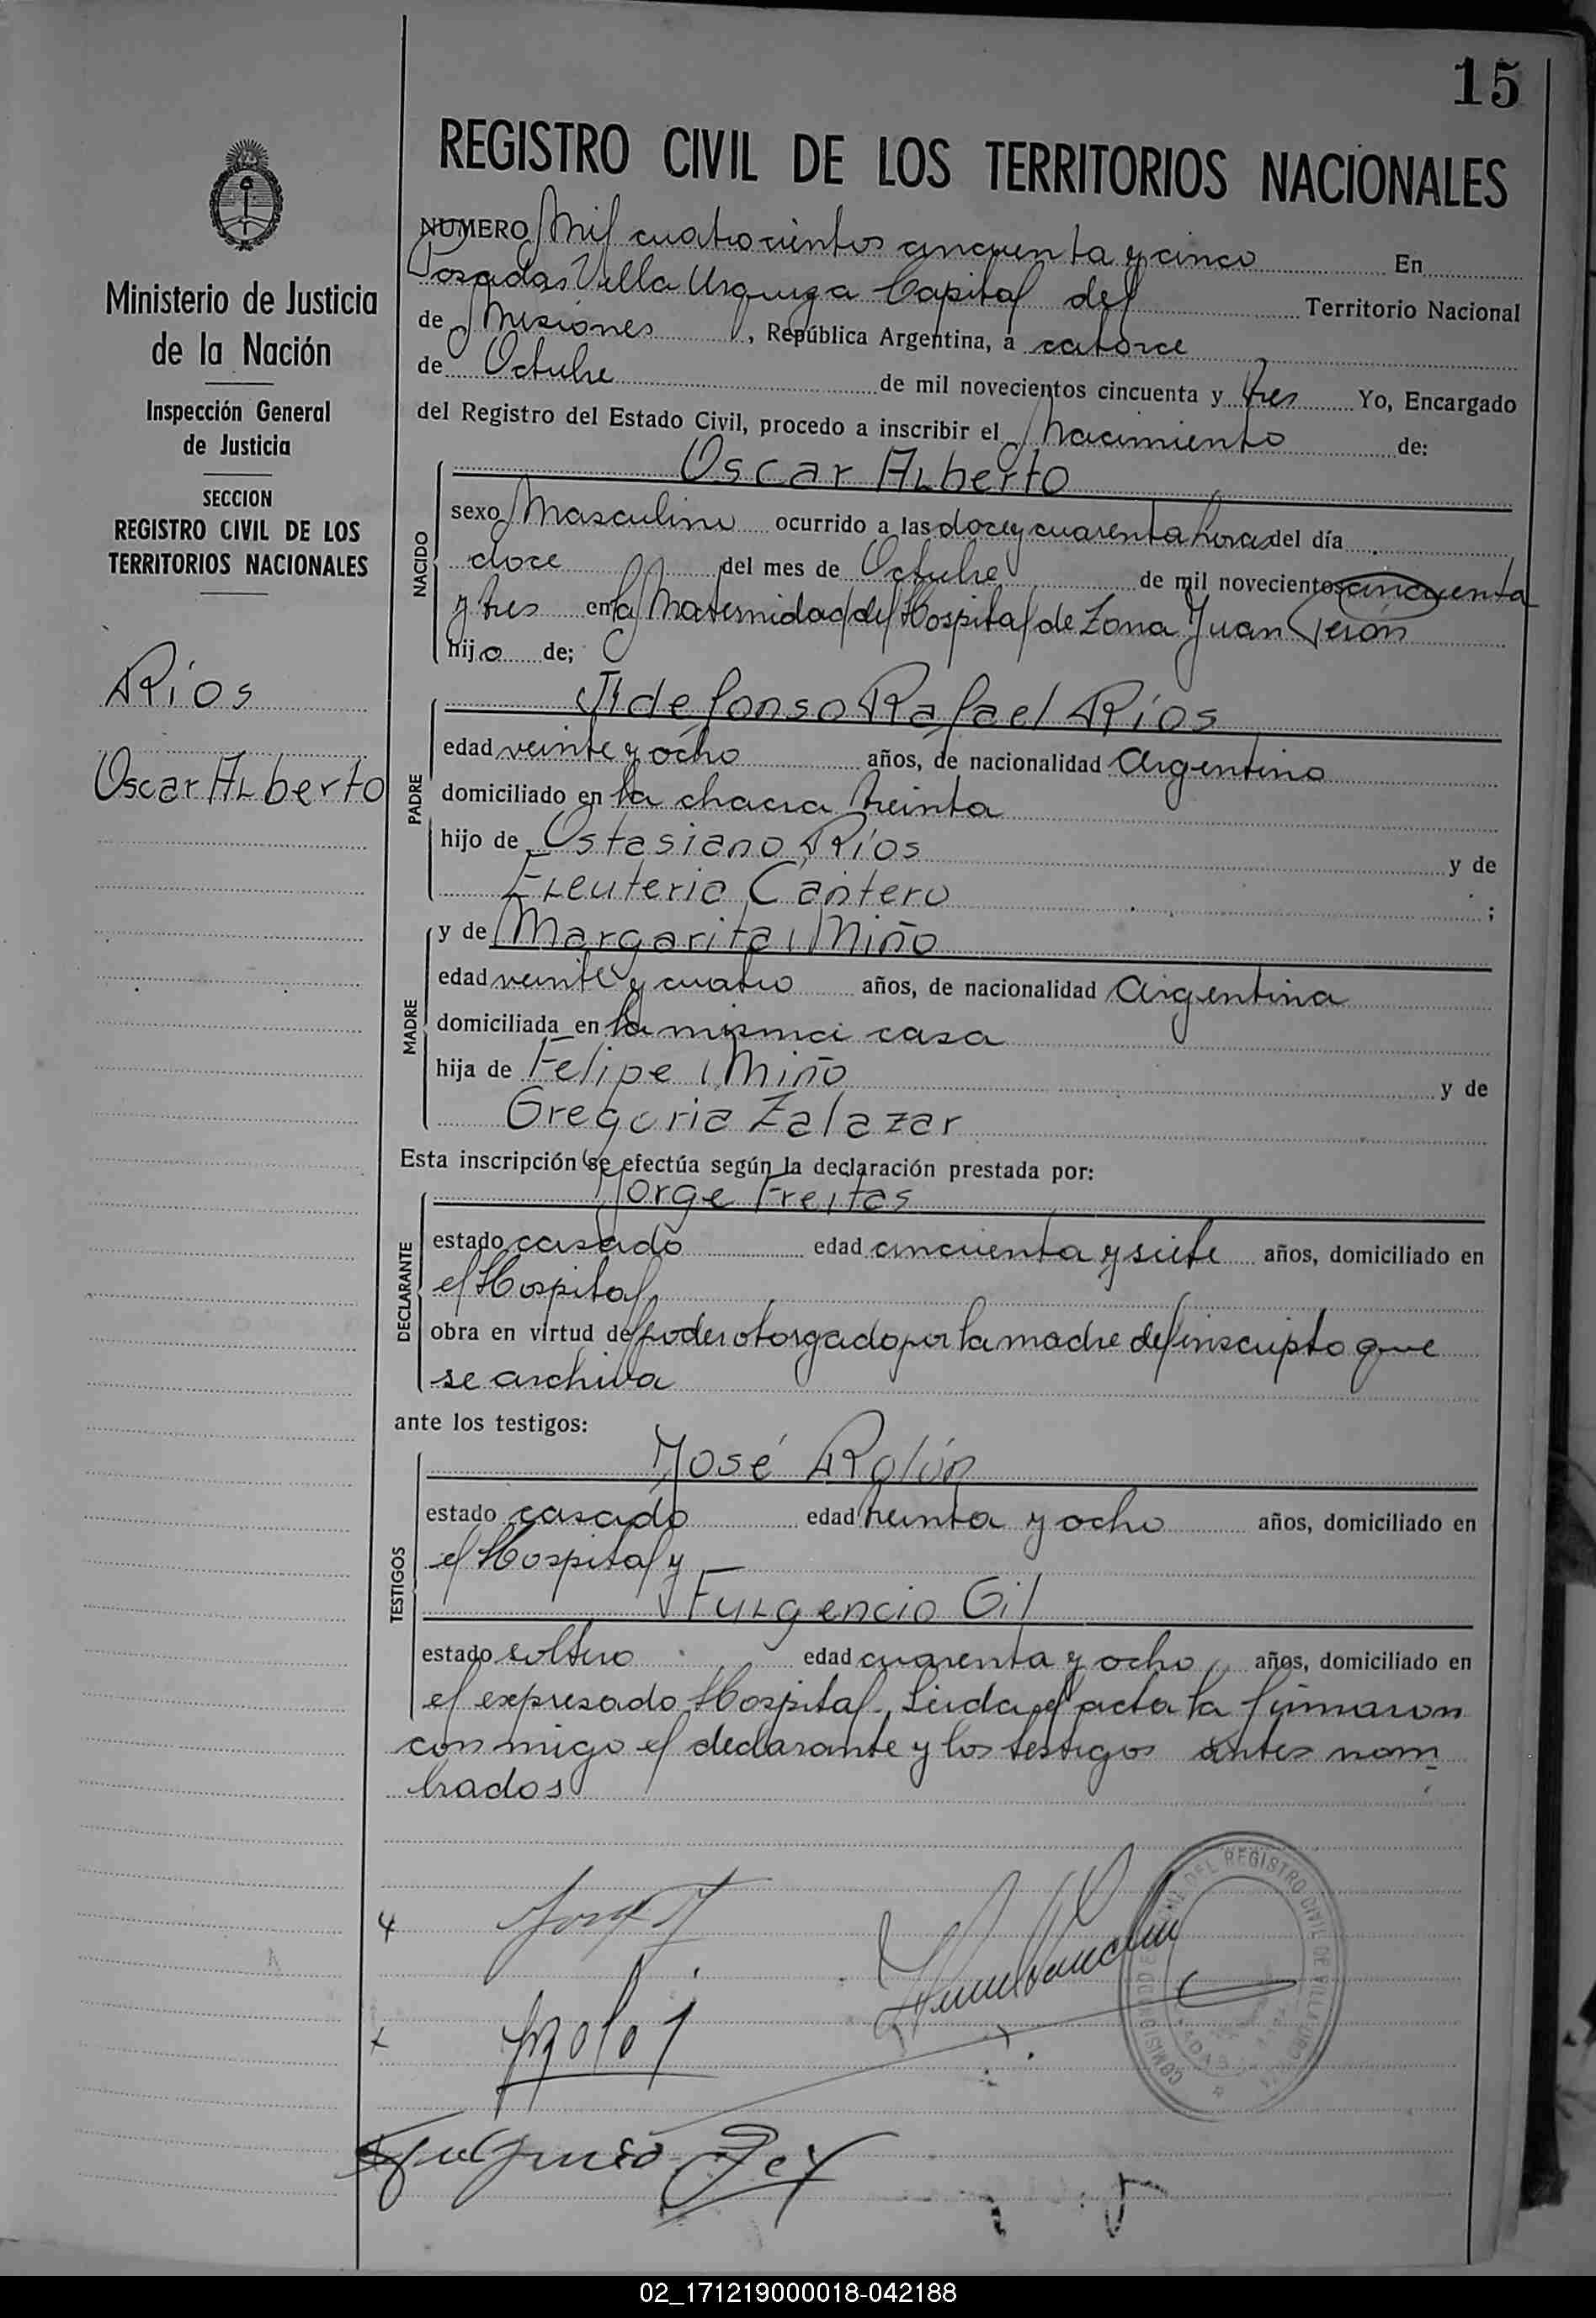 15
REGISTRO CIVIL DE LOS TERRITORIOS NACIONALES
Ministerio de Justicia
de la Nación
Inspección General
de Justicia
SECCION
REGISTRO CIVIL DE LOS
TERRITORIOS NACIONALES
Ríos
Oscar Alberto
NUMERO Mil cuatrocientos cincuenta y cinco En
Posadas Villa Urquiza Capital del Territorio Nacional
de Misiones, República Argentina, a catorce
de Octubre de mil novecientos cincuenta y tres Yo, Encargado
del Registro del Estado Civil, procedo a inscribir el Nacimiento de:
NACIDO
Oscar Alberto
sexo Masculino ocurrido a las doce y cuarenta horas del día
doce del mes de Octubre de mil novecientos cincuenta
y tres en la Maternidad del Hospital de Zona Juan Perón
hijo de;
PADRE
Ildefonso Rafael Ríos
edad veinte y ocho años, de nacionalidad Argentino
domiciliado en la chacra treinta
hijo de Ostasiano Ríos y de
Eleuteria Cantero ;
MADRE
y de Margarita Miño
edad veinte y cuatro años, de nacionalidad Argentina
domiciliada en la misma casa
hija de Felipe Miño y de
Gregoria Zalazar
Esta inscripción se efectúa según la declaración prestada por:
DECLARANTE
Jorge Freitas
estado casado edad cincuenta y siete años, domiciliado en
el Hospital
obra en virtud del poder otorgado por la madre del inscripto que
se archiva
ante los testigos:
TESTIGOS
José Rolón
estado casado edad treinta y ocho años, domiciliado en
el Hospital y
Fulgencio Gil
estado soltero edad cuarenta y ocho años, domiciliado en
el expresado Hospital. Leída el acta la firmaron
conmigo el declarante y los testigos antes nom
brados
DEL REGISTRO CIVIL DE VILLA URQUIZA
Fulgencio Gil
02_171219000018-042188